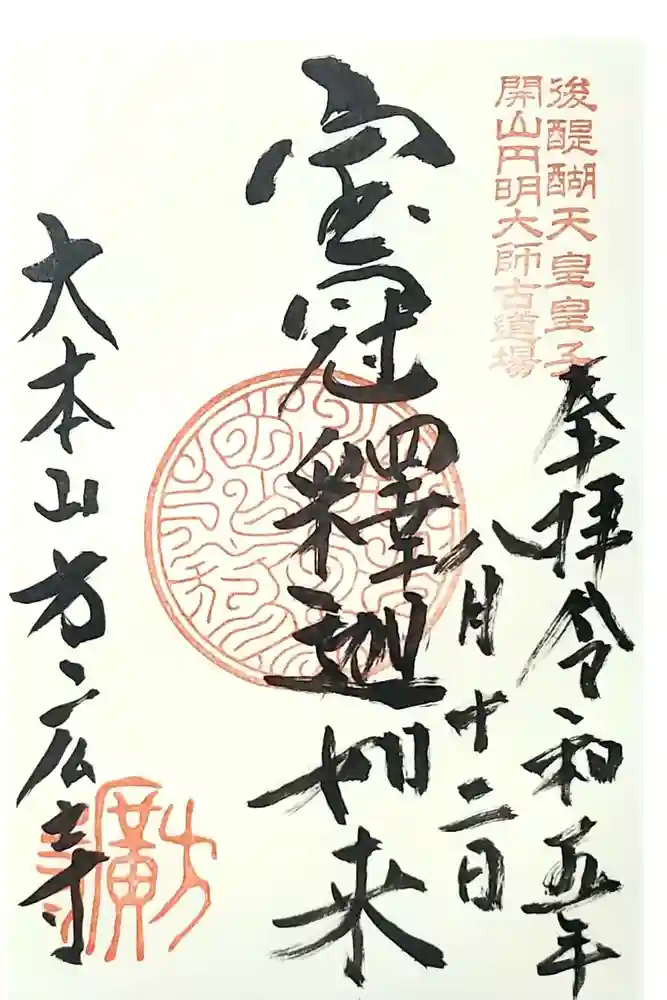 後醍醐天皇皇子
開山円明大師古道場
奉拝 令和五年
八月十二日
宝冠釋迦如来
大本山方広寺